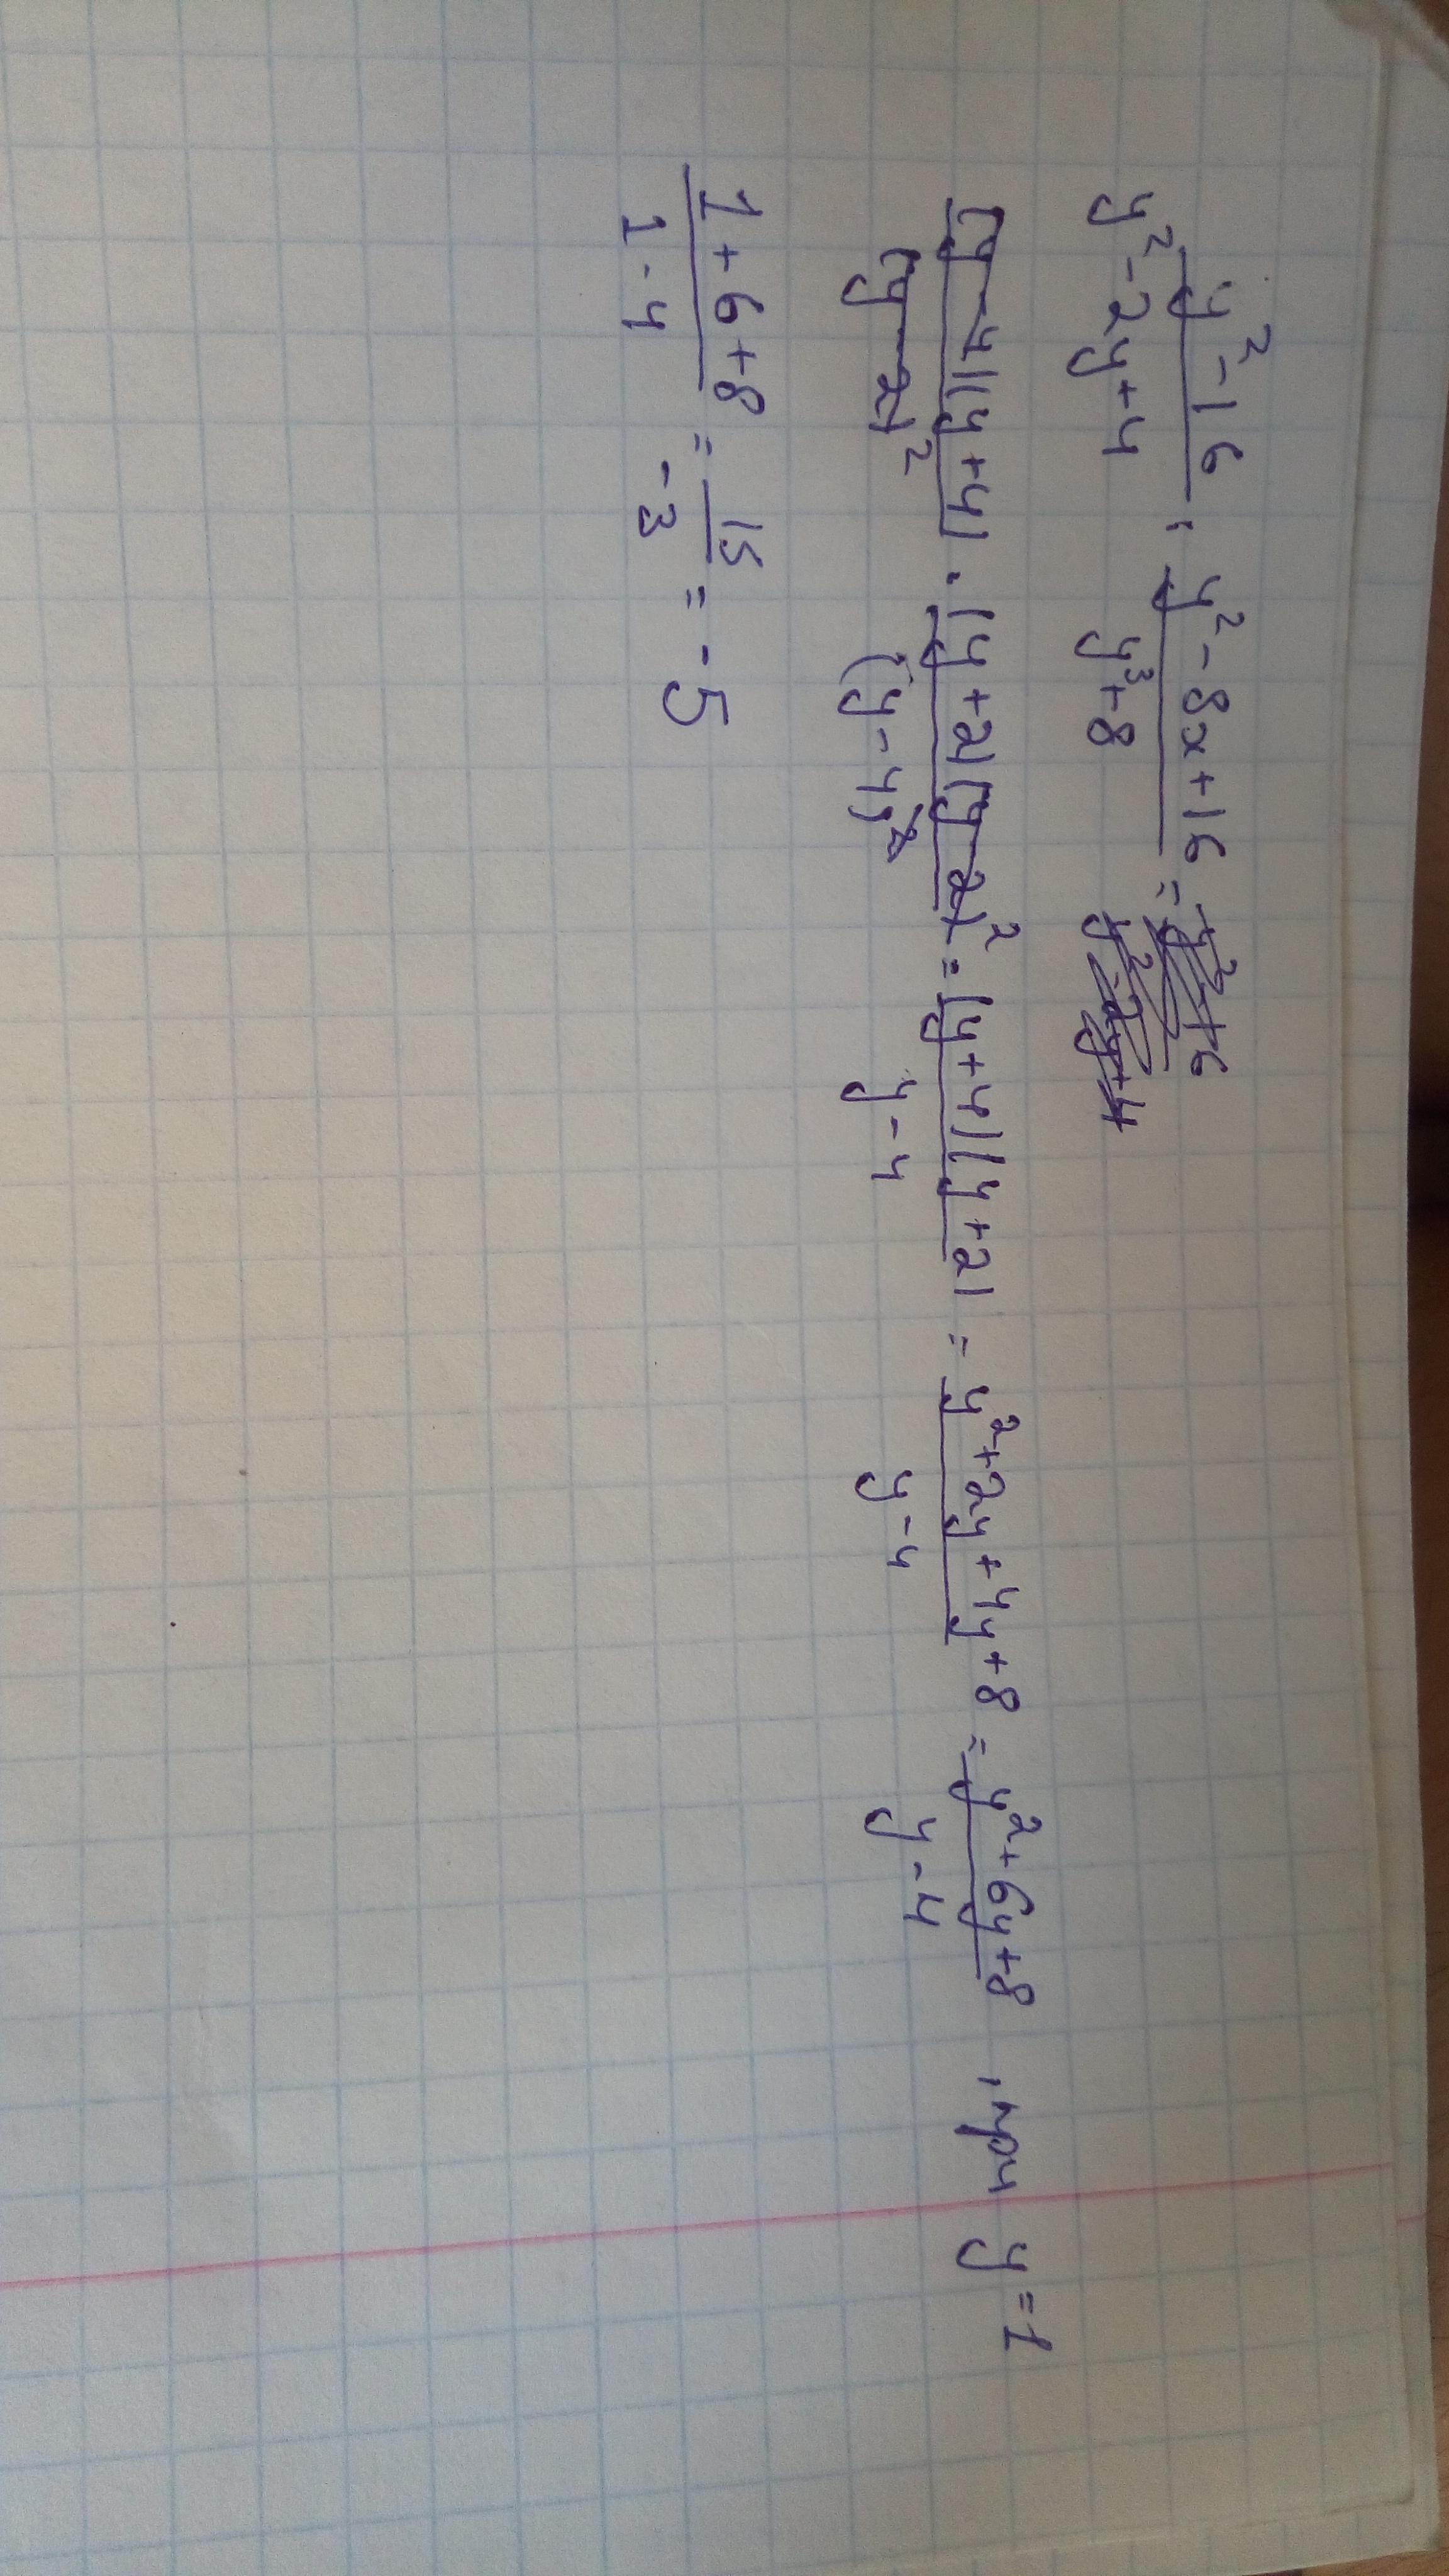 y²-16 / y²-2y+4 : y²-8x+16 / y³+8 =
(y-4)(y+4) / (y-2)² · (y+2)(y-2)² / (y-4)² = (y+4)(y+2) / y-4 = y²+2y+4y+8 / y-4 = y²+6y+8 / y-4 , при y=1
1+6+8 / 1-4 = 15 / -3 = -5